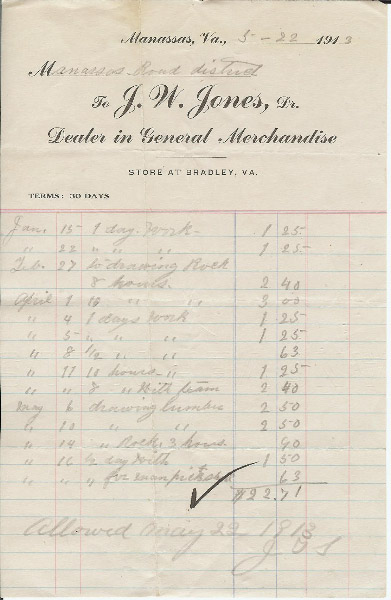 Manassas, Va., 5 - 22 1913
Manassas Road district
To J. W. Jones, Dr.
Dealer in General Merchandise
STORE AT BRADLEY, VA.
TERMS: 30 DAYS
Jan. 15 1 day Work 1 25
" 22 " " " 1 25
Feb. 27 to drawing Rock
8 hours. 2 40
April 1 10 " " 3 00
" 4 1 days Work 1 25
" 5 " " " 1 25
" 8 1/2 " " 63
" 17 10 hours " 1 25
" " 8 " With team 2 40
May 6 drawing lumber 2 50
" 10 " " 2 50
" 14 " Rock 3 hours 90
" 16 1/2 day With 1 50
" " " for man 63
$22.71
Allowed May 22 1913